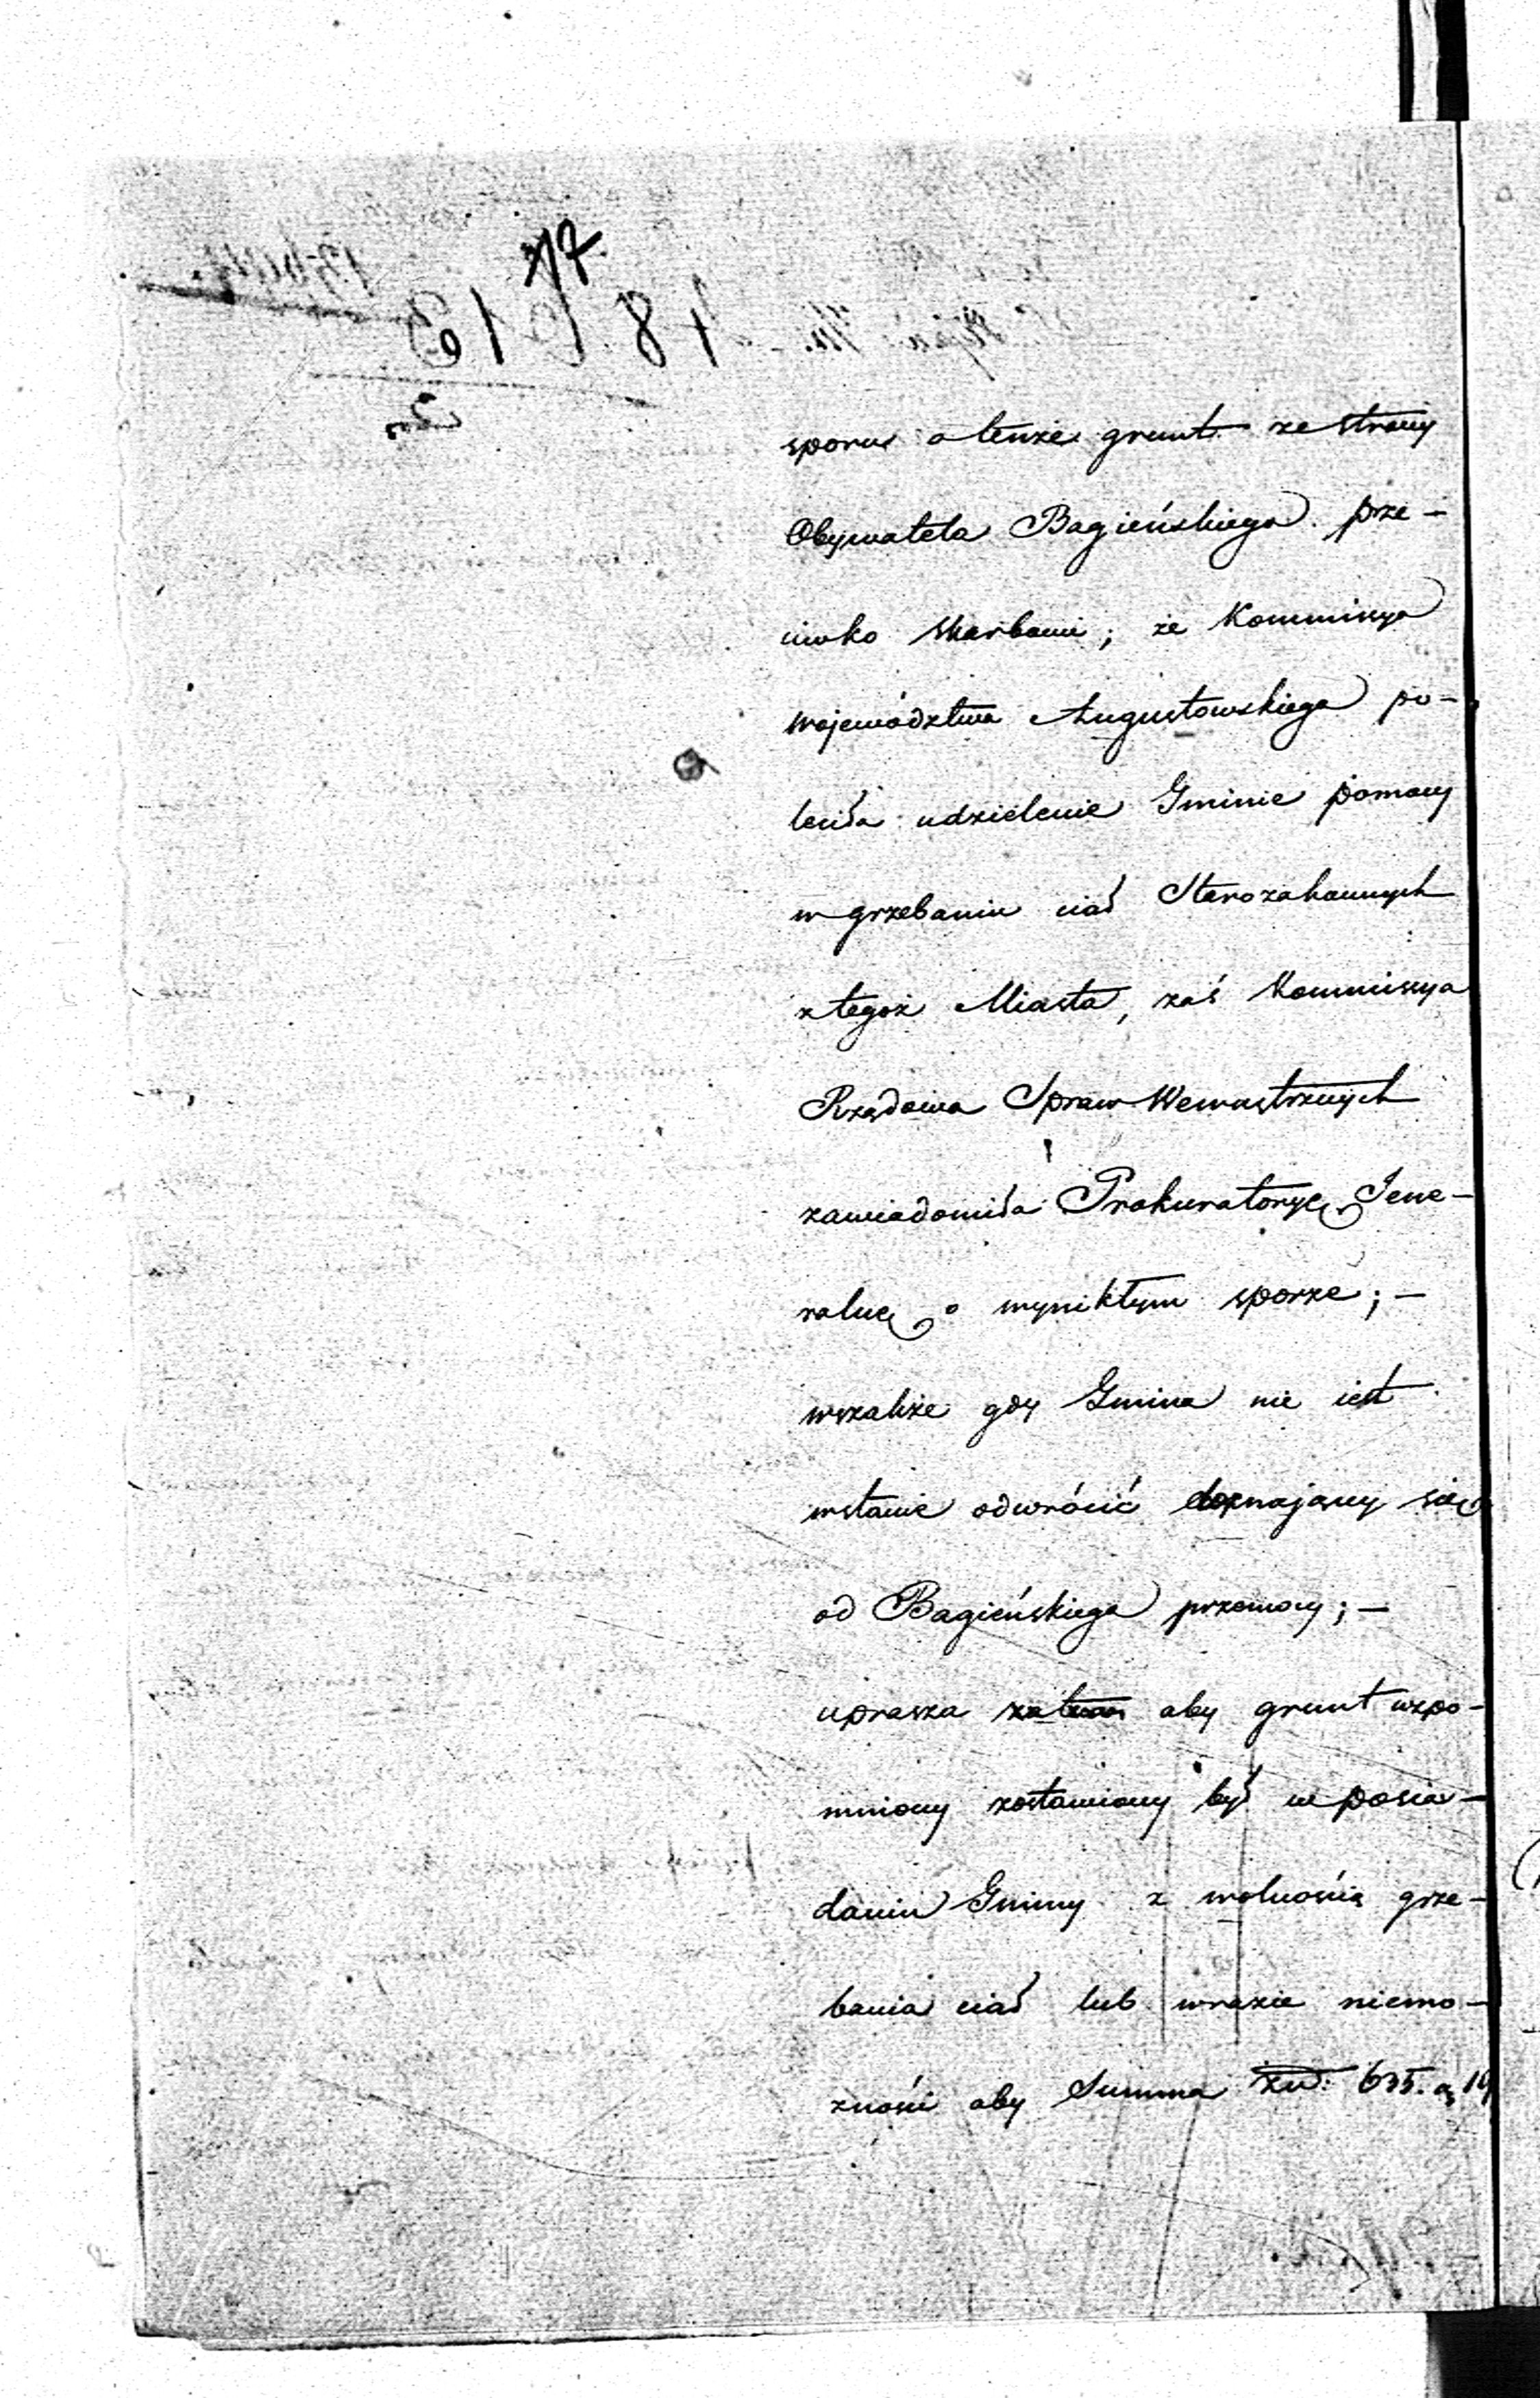 17
sporu o tenże grunt ze strony
Obywatela Bagieńskiego prze-
ciwko skarbowi; że Kommissya
Województwa Augustowskiego po-
leciła udzielenie Gminie pomocy
w grzebaniu ciał Starozakonnych
z tegoż Miasta, zaś Kommissya
Rządowa Spraw Wewnętrznych
zawiadomiła Prokuratoryę Jene-
ralną o wynikłym sporze; —
wszakże gdy Gmina nie iest
wstanie odwrócić doznający się
od Bagieńskiego przemocy; —
uprasza zatem aby grunt wspo-
mniony zostawiony był w posia-
daniu Gminy z wolnością grze-
bania ciał lub wrazie niemo-
żności aby Summa 635. 19